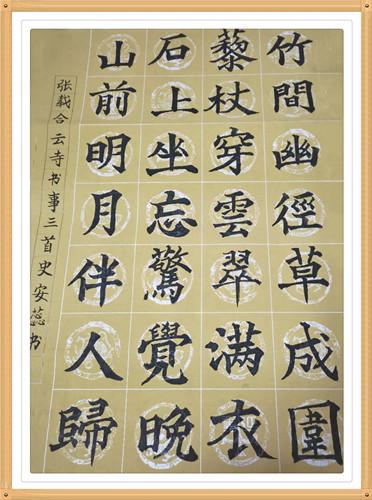 竹間幽徑草成圍
藜杖穿雲翠滿衣
石上坐忘驚覺晚
山前明月伴人歸
张栽合云寺书事三首史安蕊书